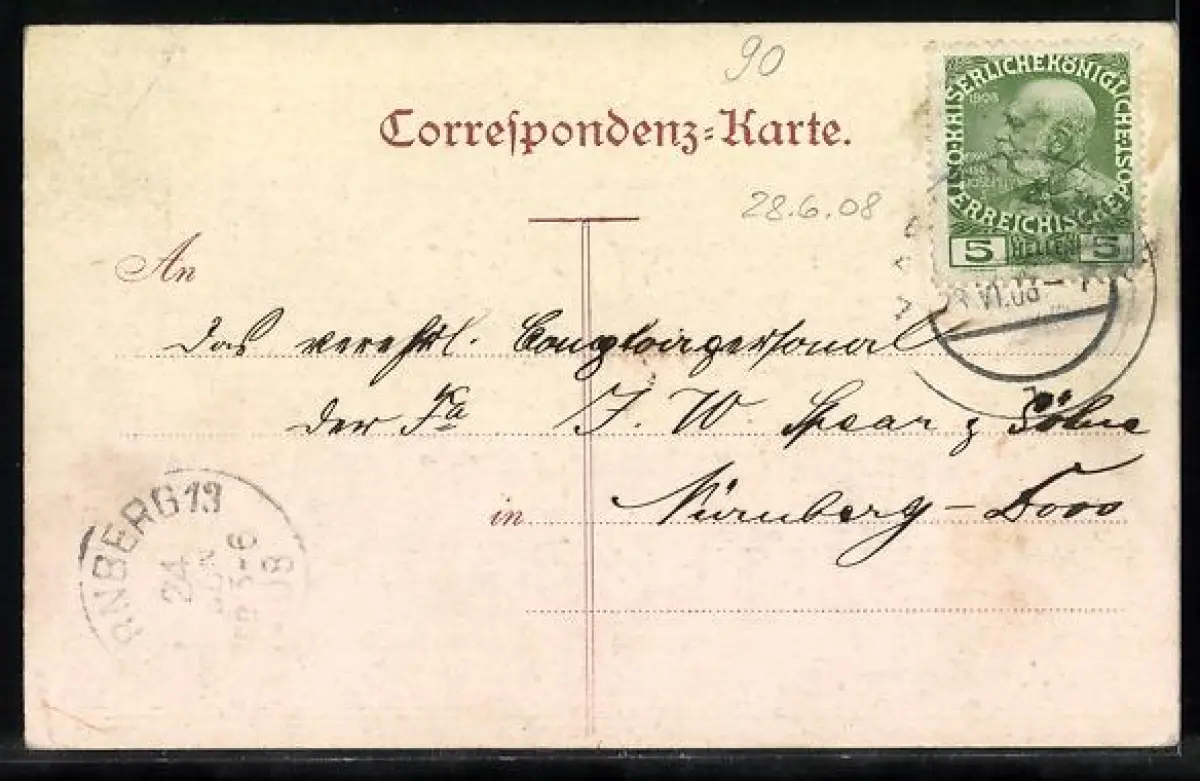 90
Correspondenz-Karte.
KAISERLICHE KÖNIGLICHE ÖSTERREICHISCHE POST
1908
5 HELLER 5
28.6.08
VI.08
An
Das verehrl. Comptoirpersonal
der Fa J. W. Spear & Söhne
in Nürnberg-Doos
RNBERG 13
24
JUN
5-6
08